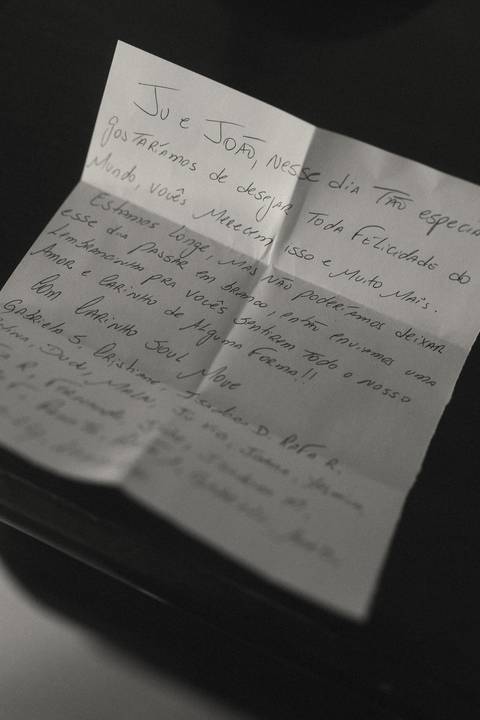 Ju e João, nesse dia tão especial
gostaríamos de desejar toda felicidade do
mundo, vocês merecem isso e muito mais.
Estamos longe, mas não poderíamos deixar
esse dia passar em branco, então enviamos uma
lembrancinha pra vocês sentirem todo o nosso
amor e carinho de alguma forma!!
Com carinho Soul Move
Gabriela S, Cristiane, D. Rafa R.
Dudi,
R. Fernanda